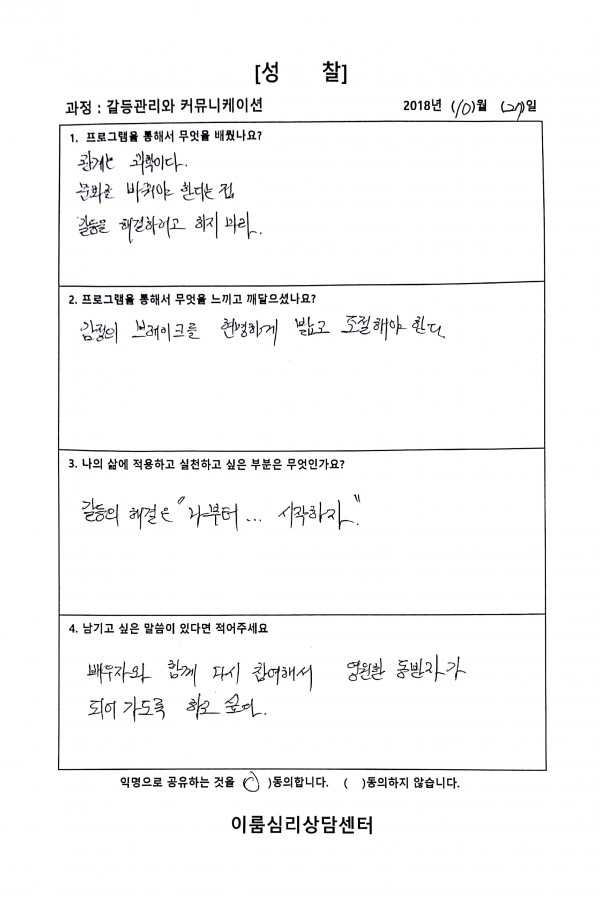 [성 찰]
과정 : 갈등관리와 커뮤니케이션 2018년 (10)월 (27)일
1. 프로그램을 통해서 무엇을 배웠나요?
관계는 과학이다.
문화를 바꿔야 한다는 점
갈등을 해결하려고 하지 마라.
2. 프로그램을 통해서 무엇을 느끼고 깨달으셨나요?
감정의 브레이크를 현명하게 밟고 조절해야 한다.
3. 나의 삶에 적용하고 실천하고 싶은 부분은 무엇인가요?
갈등의 해결은 "나부터... 시작하자".
4. 남기고 싶은 말씀이 있다면 적어주세요
배우자와 함께 다시 참여해서 영원한 동반자가
되어 가도록 하고 싶다.
익명으로 공유하는 것을 (O)동의합니다. ( )동의하지 않습니다.
이룸심리상담센터